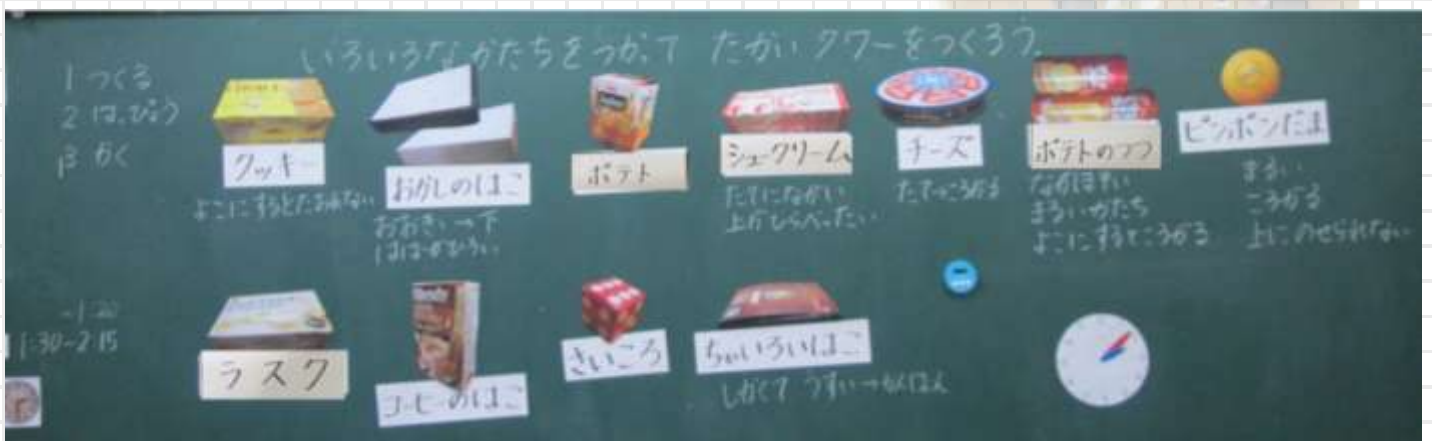 いろいろなかたちをつかって たかいタワーをつくろう
1 つくる
2 はっぴょう
3 かく
クッキー
よこにするとたおれない
おかしのはこ
おおきい→下
はばがひろい
ポテト
シュークリーム
たてにながい
上がひらべったい
チーズ
たて→ころがる
ポテトのつつ
ながほそい
まるいかたち
よこにするところがる
ピンポンだま
まるい
ころがる
上にのせられない
-1:20
1:30-2:15
ラスク
コーヒーのはこ
さいころ
ちゃいろいはこ
しかくて うすい→